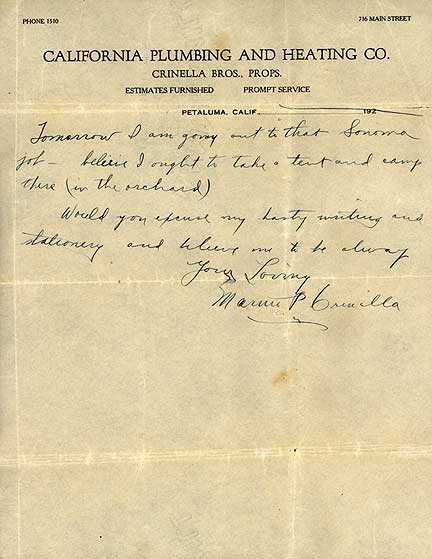 PHONE 1510
716 MAIN STREET
CALIFORNIA PLUMBING AND HEATING CO.
CRINELLA BROS., PROPS.
ESTIMATES FURNISHED PROMPT SERVICE
PETALUMA, CALIF. 192
Tomorrow I am going out to that Sonoma
job – believe I ought to take a tent and camp
there (in the orchard)
Would you excuse my hasty writing and
stationery and believe me to be alway
Your Loving
P Crinella